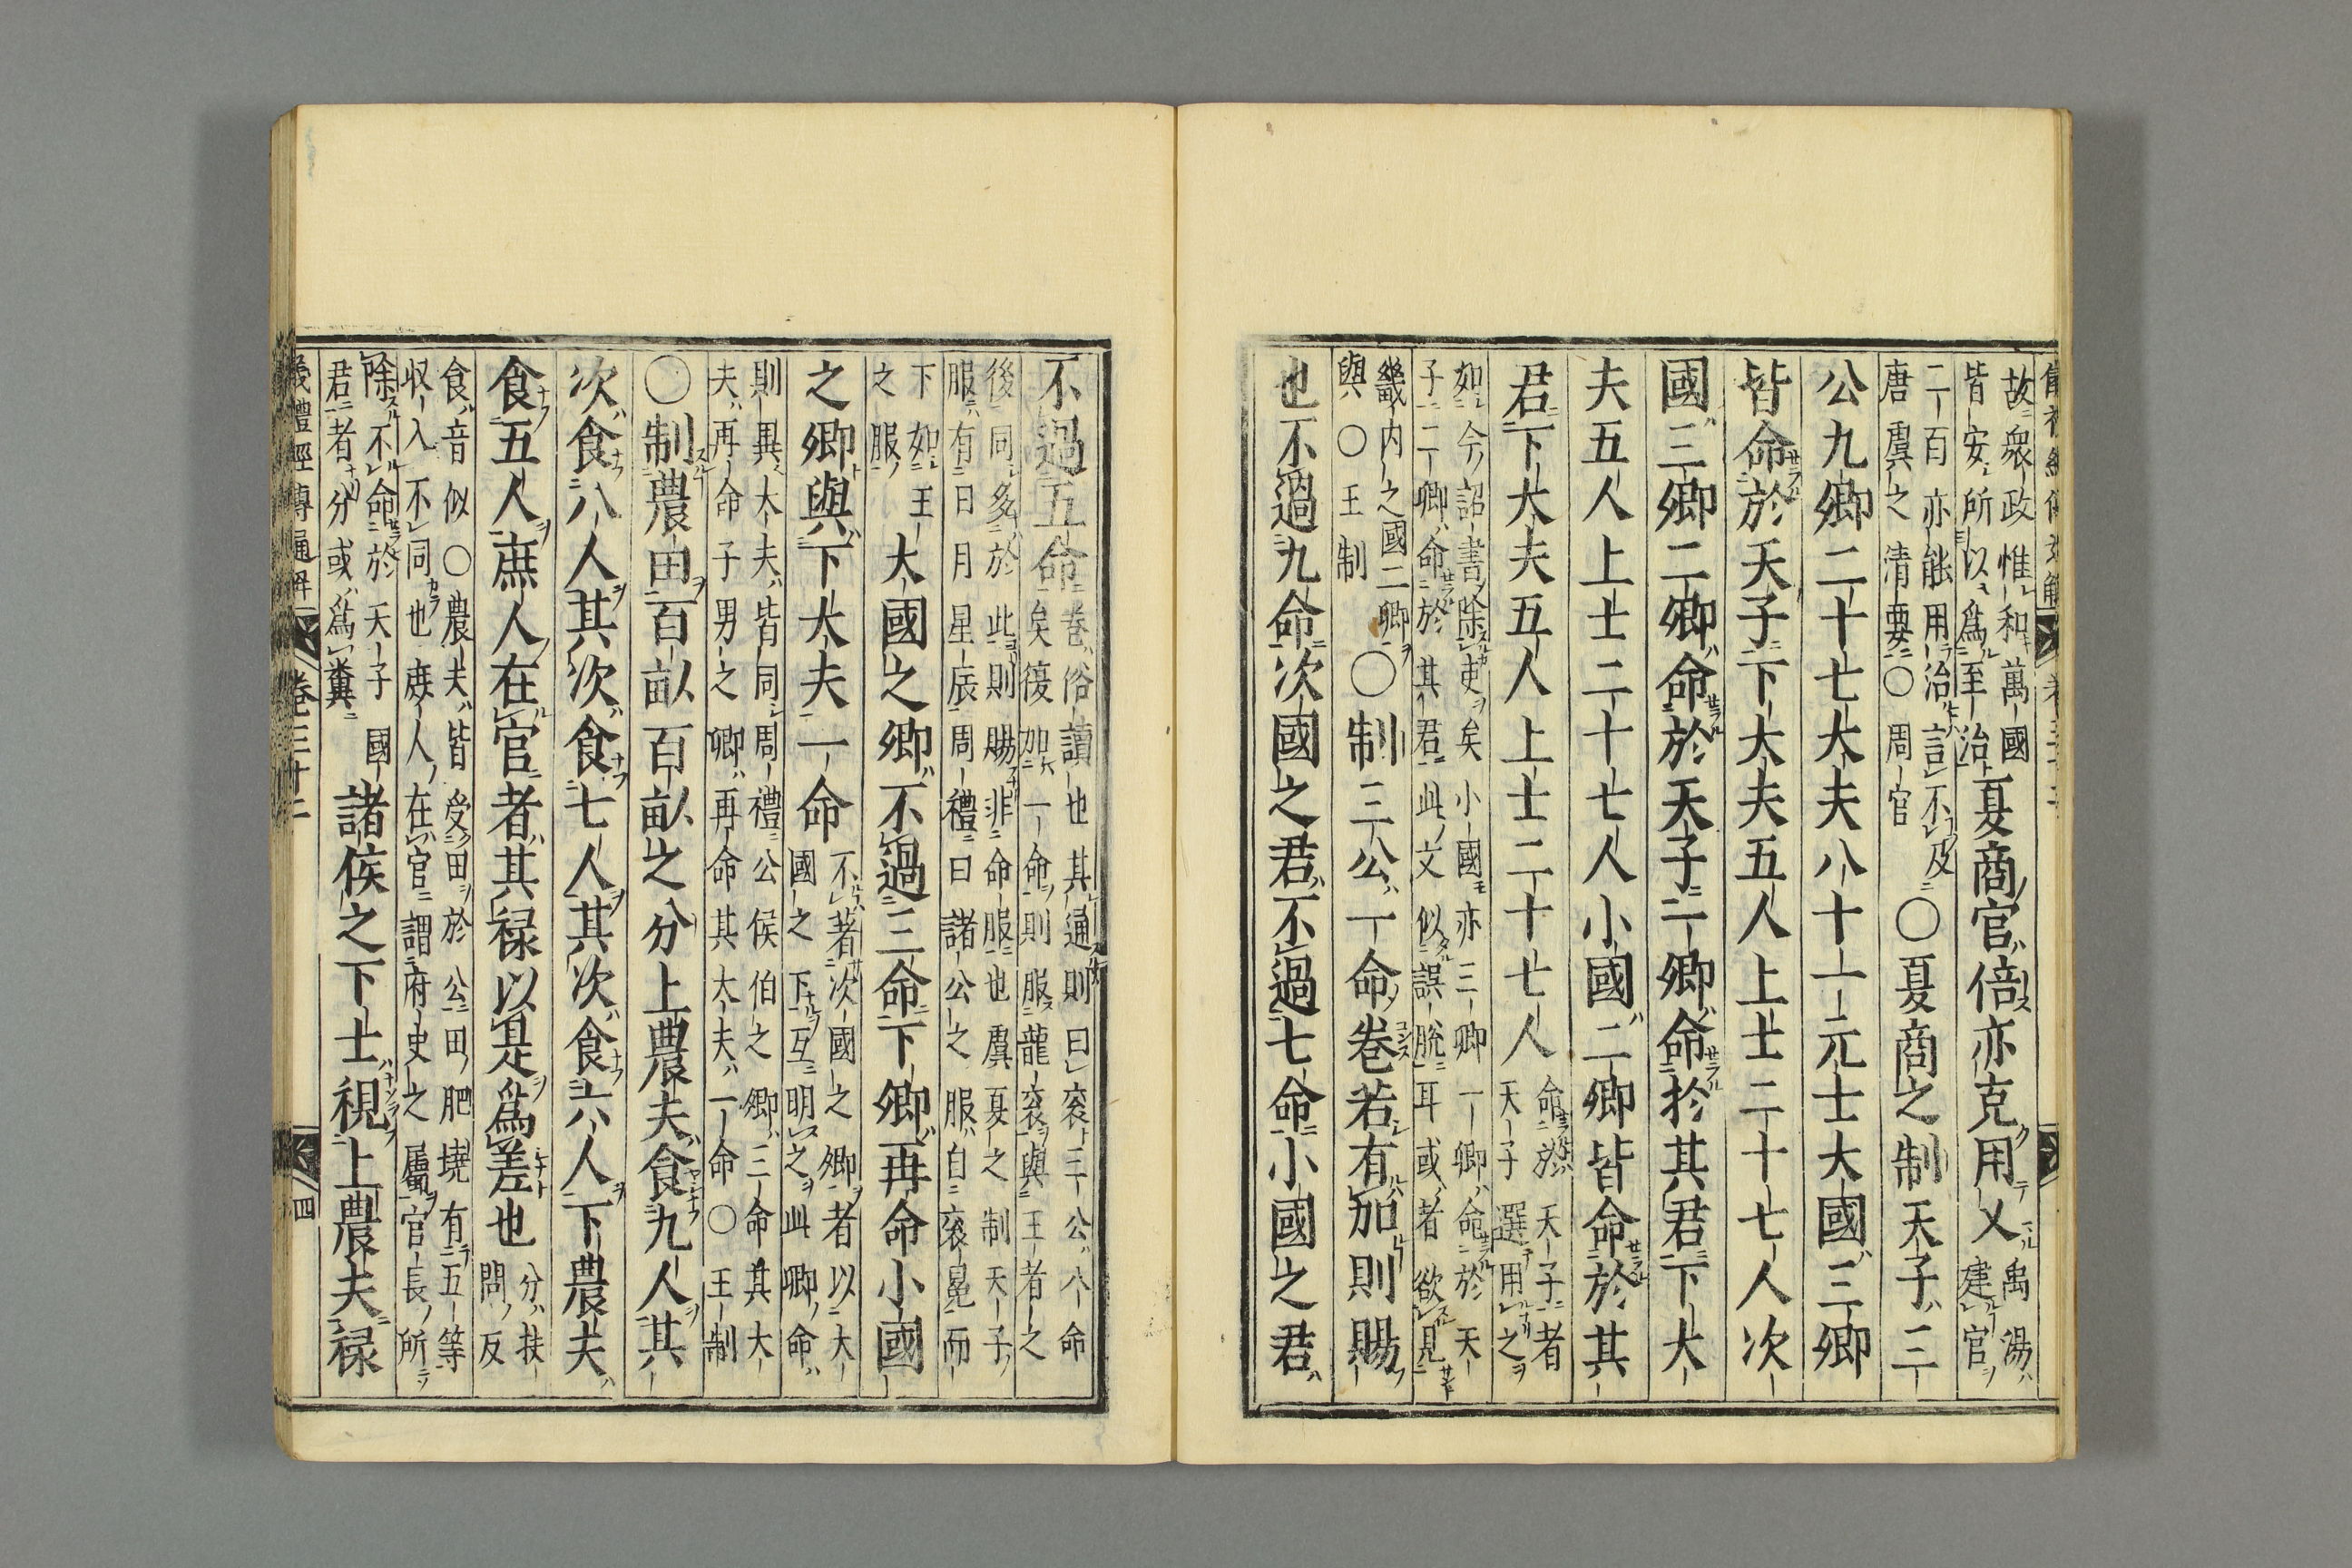 故衆政惟和萬國
皆安所以爲至治
夏商官倍亦克用乂
禹湯
建官
二百亦能用治言不及
唐虞之清要〇周官
〇夏商之制天子三
公九卿二十七大夫八十一元士大國三卿
皆命於天子下大夫五人上士二十七人次
國三卿二卿命於天子一卿命於其君下大
夫五人上士二十七人小國二卿皆命於其
君下大夫五人上士二十七人
命於天子者
天子選用之
如今詔書除吏矣小國亦三卿一卿命於天
子二卿命於其君此文似誤脫耳或者欲見
畿内之國二卿
與〇王制
〇制三公一命卷若有加則賜
也不過九命次國之君不過七命小國之君
不過五命
卷俗讀也其通則曰衮三公八命
矣復加一命則服龍衮與王者之
後同多於此則賜非命服也虞夏之制天子
服有日月星辰周禮曰諸公之服自衮冕而
下如王
之服
大國之卿不過三命下卿再命小國
之卿與下大夫一命
不著次國之卿者以大
國之下互明之此卿命
則異大夫皆同周禮公侯伯之卿三命其大
夫再命子男之卿再命其大夫一命〇王制
〇制農田百畝百畝之分上農夫食九人其
次食八人其次食七人其次食六人下農夫
食五人庶人在官者其禄以是爲差也
分扶
問反
食音似〇農夫皆受田於公田肥墝有五等
収入不同也庶人在官謂府史之屬官長所
除不命於天子國
君者分或爲糞
諸侯之下士視上農夫禄
儀禮經傳通解
卷三十二
四